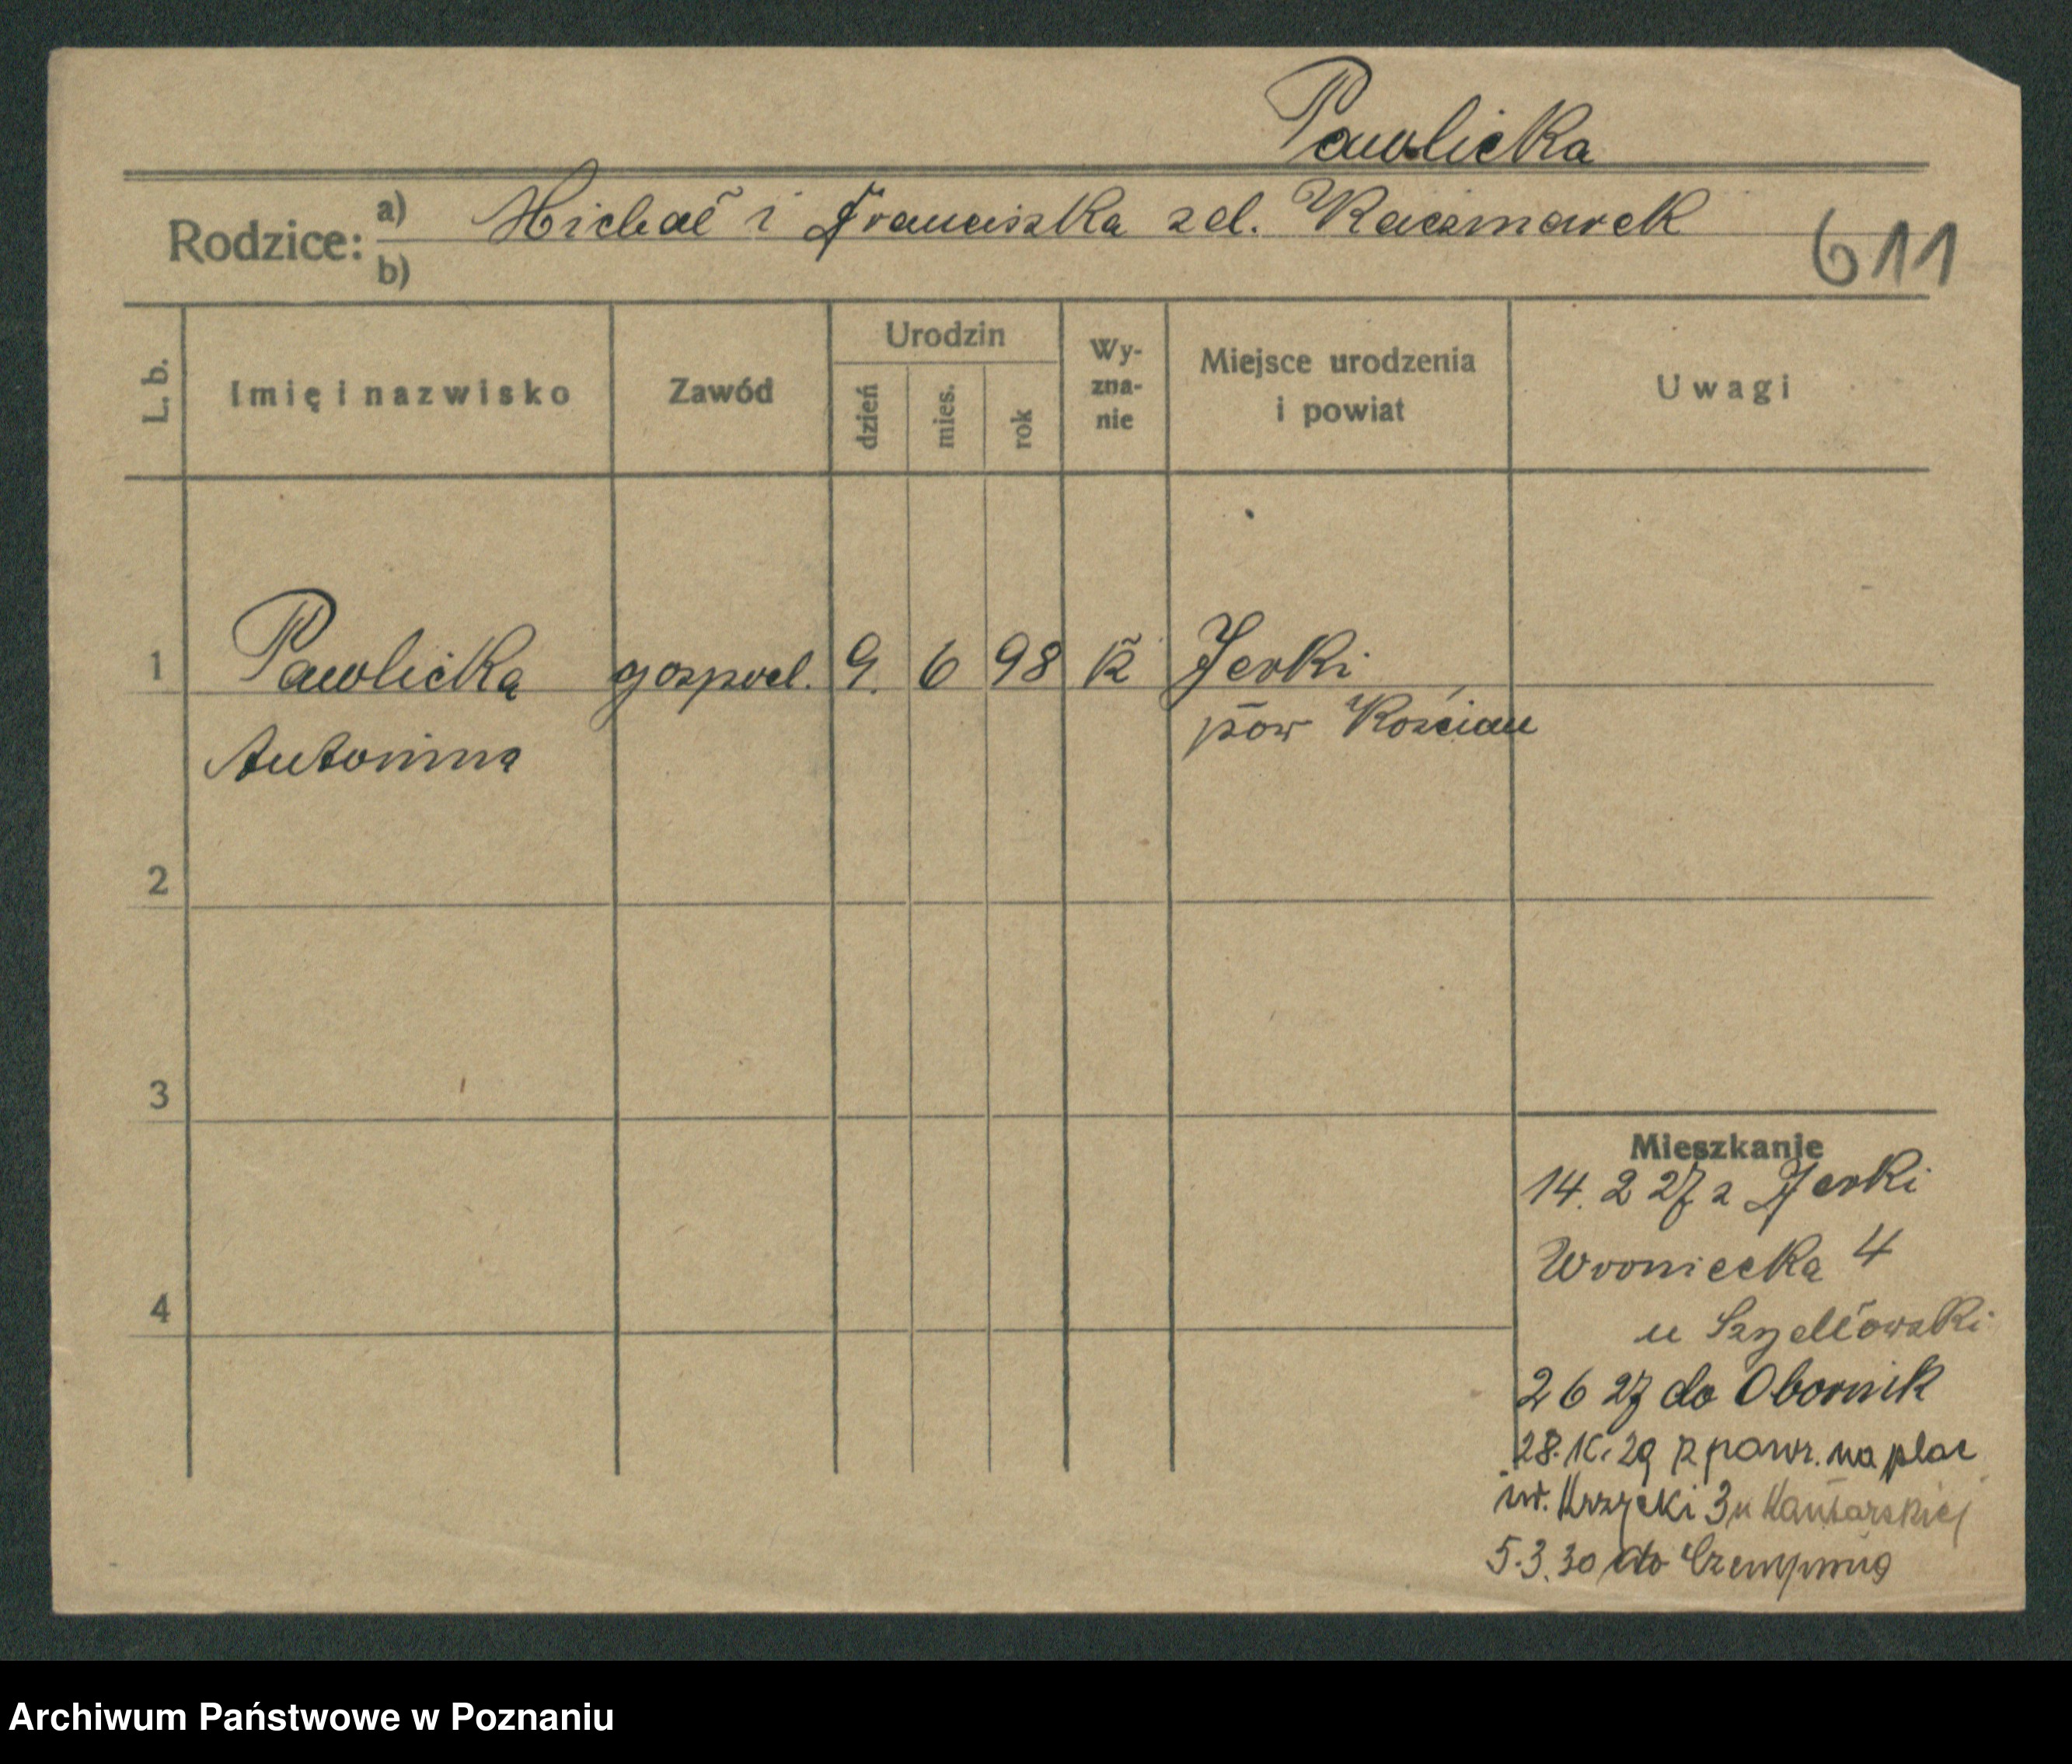 Pawlicka
Rodzice: a) Michał i Franciszka zd. Kaczmarek
b)
611
L. b.
Imię i nazwisko
Zawód
Urodzin
dzień
mies.
rok
Wy-
zna-
nie
Miejsce urodzenia
i powiat
Uwagi
1 Pawlicka gospod. 9. 6 98 k Jerki
Antonina pow Kościan
2
3
4
Mieszkanie
14. 2 27 z Jerki
Wroniecka 4
u Szydłowski
2 6 27 do Obornik
28. 29 powr. na plac
Krzycki 3 u Kantarskiej
5.3.30 do Czempinia
Archiwum Państwowe w Poznaniu